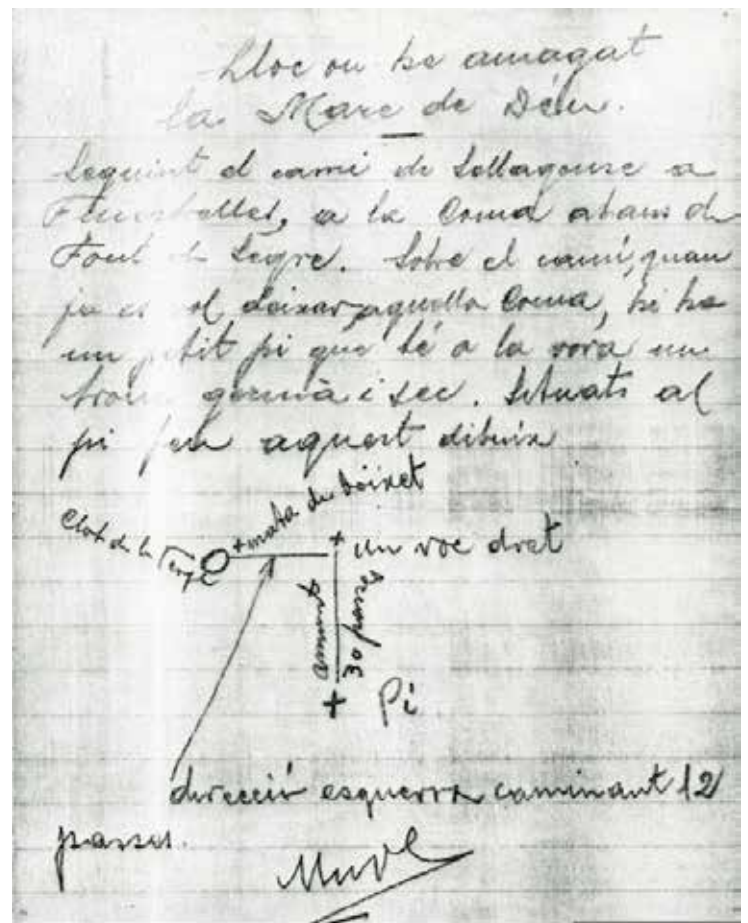 Lloc on he amagat
la Mare de Déu.
Seguint el camí de Sallagouse a
a la Coma abans de
Font de Segre. Sobre el camí, quan
ja es vol deixar aquella Coma, hi ha
un petit pi que té a la vora un
tronc germà i sec. Situats al
pi feu aquest dibuix
mata de boixet
Clot de la Verge
un roc dret
amunt
30 passes
Pi
direcció esquerra caminant 12
passes.